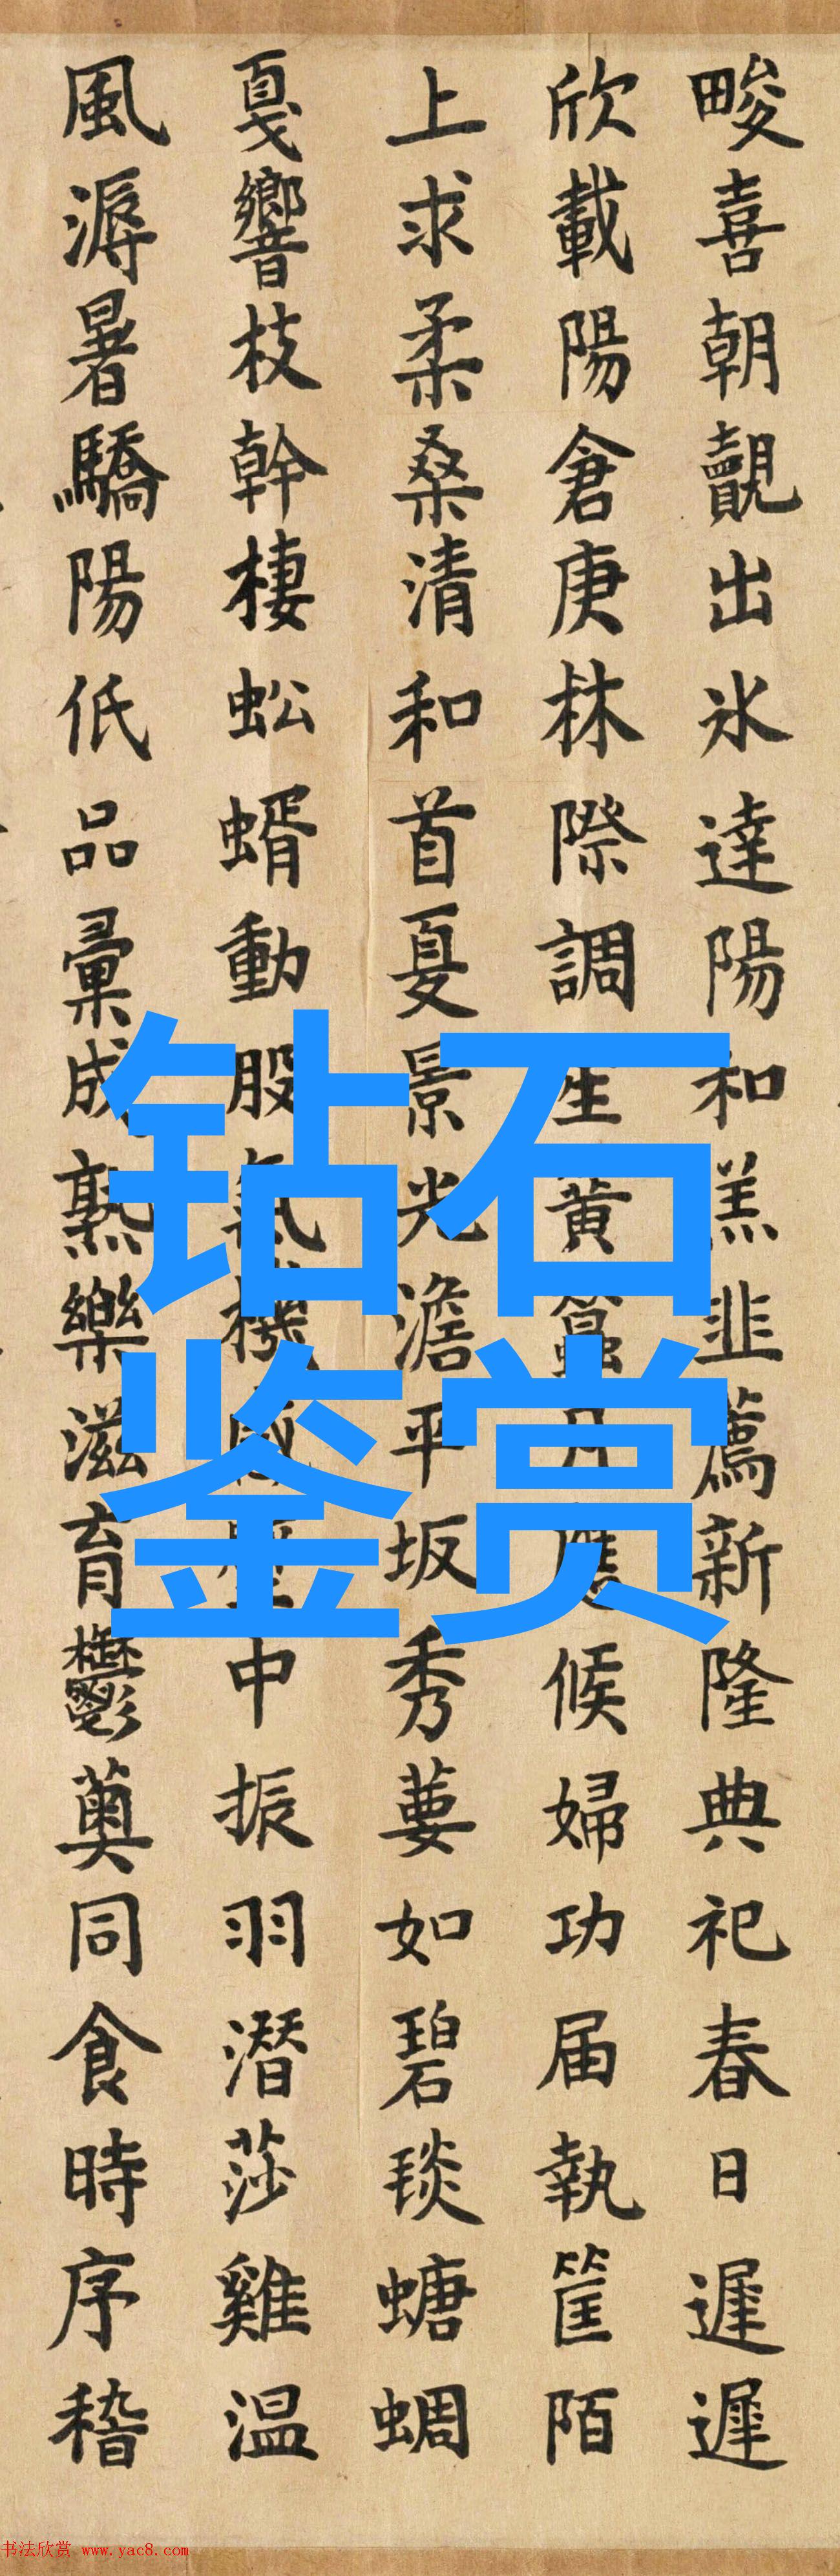 畯喜朝覿出冰達陽和羔韭薦新隆典祀春日遲遲
欣載陽倉庚林際調笙黃蠶月應候婦功届執筐陌
上求柔桑清和首夏景光澹平坂秀葽如碧琰螗蜩
戛響枝幹棲蚣蝑動股氣機感中振羽潛莎雞溫
風溽暑驕陽低品彙成熟樂滋育鬱薁同食時序稽
钻石
鉴赏
书法欣赏 www.yac8.com